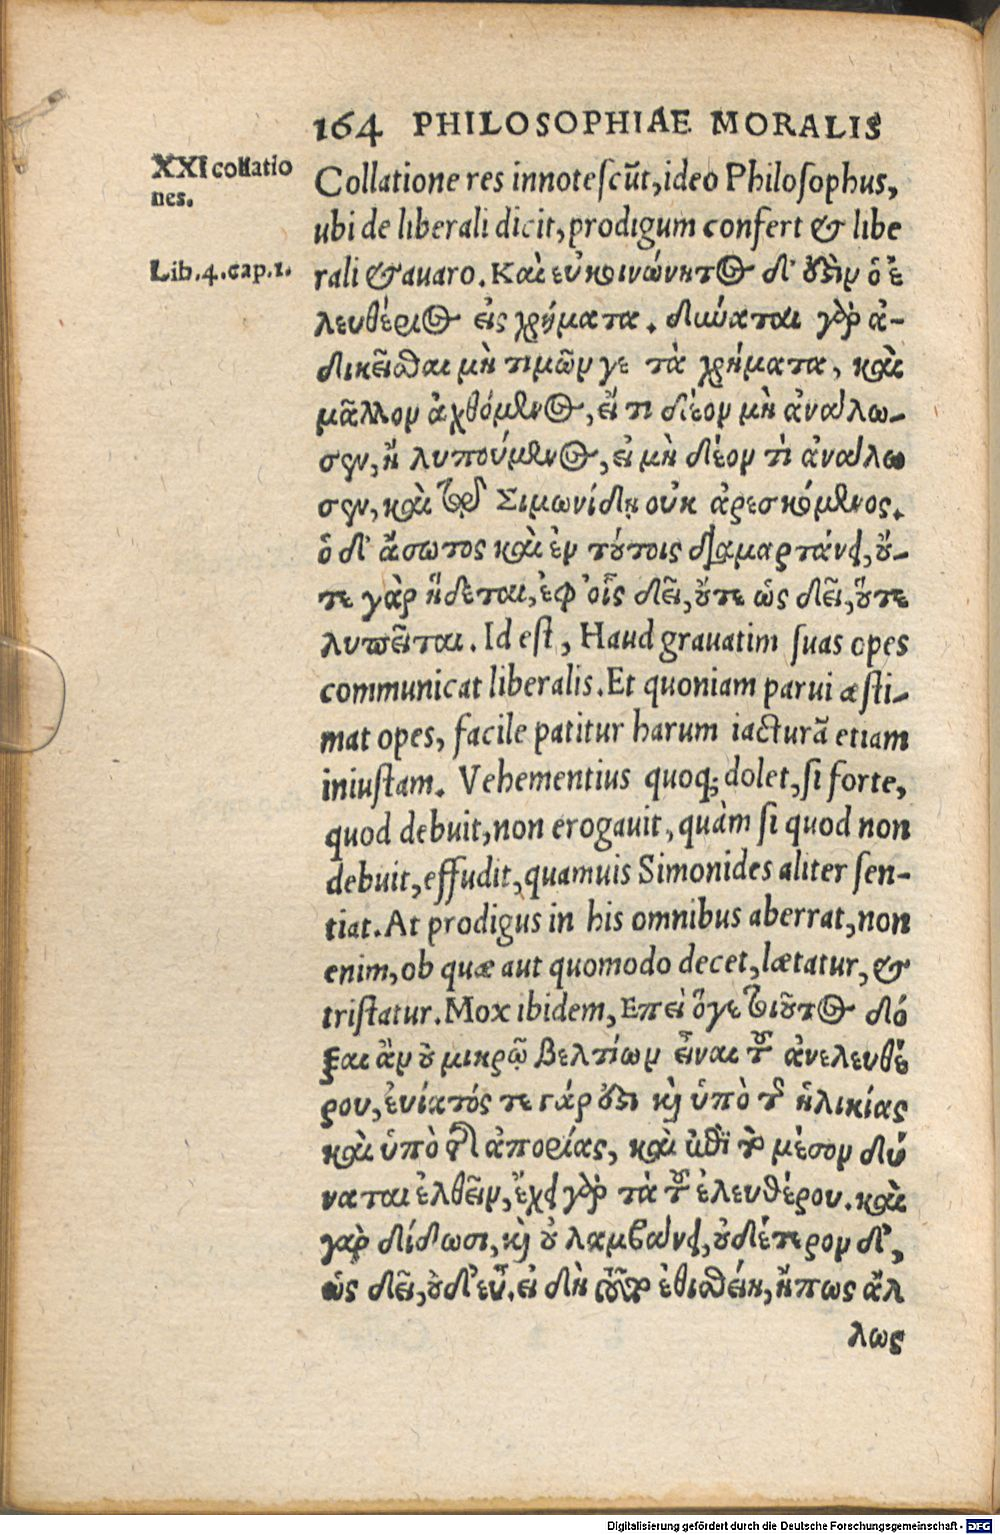 164 PHILOSOPHIAE MORALIS
XXI collatio
nes.
Collatione res innotescũt, ideo Philosophus,
ubi de liberali dicit, prodigum confert & libe
Lib.4.cap.1.
rali & auaro. Καὶ εὐκοινώνητος δ' ὅτιν ὁ ἐ
λευθέριος εἰς χρήματα. δύναται γὰρ ἀ-
δικεῖσθαι μὴ τιμῶν γε τὰ χρήματα, καὶ
μᾶλλον ἀχθόμενος, εἴ τι δέον μὴ ἀναλω-
σεν, ἢ λυπούμενος, εἰ μὴ δέον τὶ ἀναλω
σεν, καὶ τῷ Σιμωνίδῃ οὐκ ἀρεσκόμενος.
ὁ δ' ἄσωτος καὶ ἐν τούτοις διαμαρτάνει, οὔ-
τε γὰρ ἥδεται, ἐφ' οἷς δεῖ, οὔτε ὡς δεῖ, οὔτε
λυπεῖται. Id est, Haud grauatim suas opes
communicat liberalis. Et quoniam parui æsti-
mat opes, facile patitur harum iacturã etiam
iniustam. Vehementius quoq; dolet, si forte,
quod debuit, non erogauit, quàm si quod non
debuit, effudit, quamuis Simonides aliter sen-
tiat. At prodigus in his omnibus aberrat, non
enim, ob quæ aut quomodo decet, lætatur, &
tristatur. Mox ibidem, Επεὶ ὅγε τοιοῦτος δό
ξαι ἂν οὐ μικρῷ βελτίων εἶναι τοῦ ἀνελευθέ
ρου, ἐνίατός τε γάρ ὅτι καὶ ὑπὸ τῆς ἡλικίας
καὶ ὑπὸ τῆς ἀπορίας, καὶ ἐπὶ τὸ μέσον δύ
ναται ἐλθεῖν, ἔχει γὰρ τὰ τοῦ ἐλευθέρου. καὶ
γὰρ δίδωσι, καὶ οὐ λαμβάνει, οὐδέτερον δ',
ὡς δεῖ, οὐδ' εὖ. εἰ δὴ τοῦτο ἐθισθείη, ἤπως ἄλ
λως
Digitalisierung gefördert durch die Deutsche Forschungsgemeinschaft - DFG